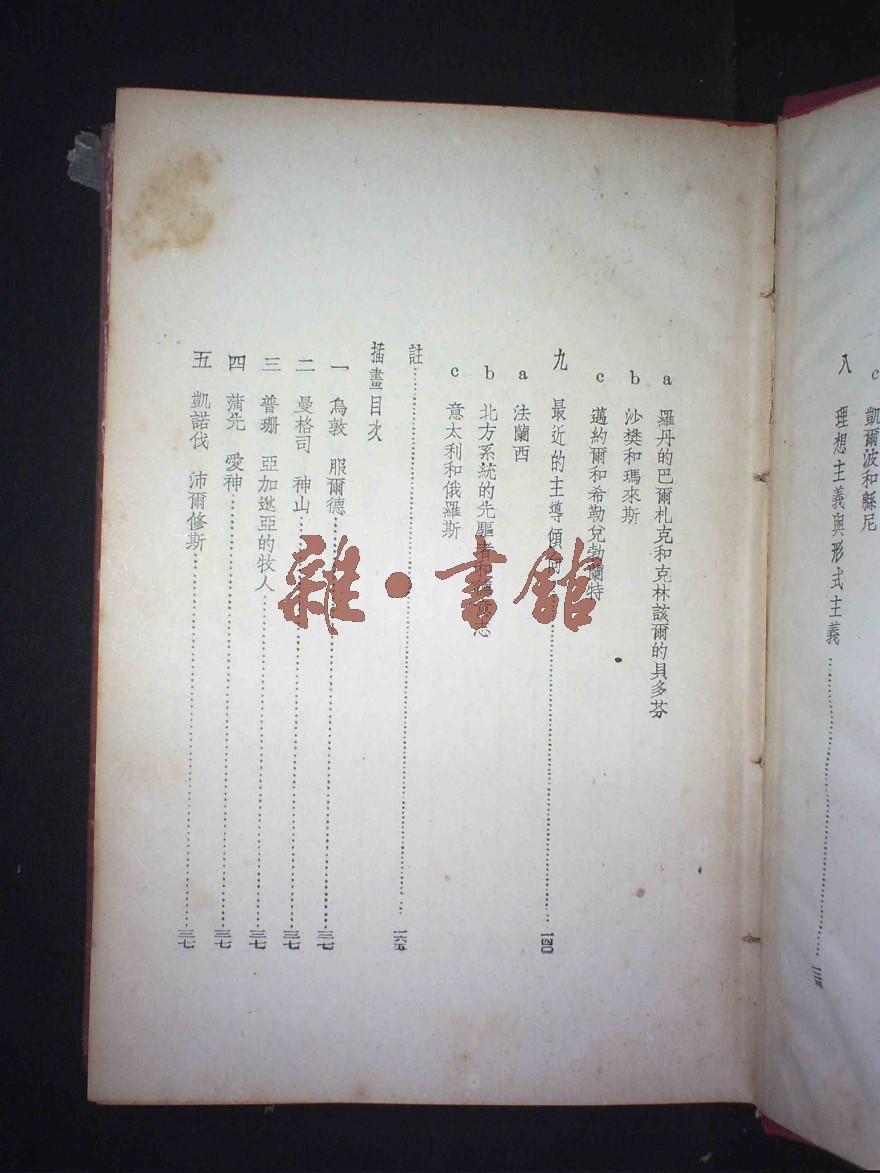 c 凱爾波和緜尼
八 理想主義與形式主義
a 羅丹的巴爾札克和克林該爾的貝多芬
b 沙樊和瑪來斯
c 邁約爾和希勒兌勃蘭特
九 最近的主導傾向 一四〇
a 法蘭西
b 北方系統的先驅者和
c 意太利和俄羅斯
註 一六五
插畫目次
一 烏敦 服爾德 三七
二 曼格司 神山 三七
三 普珊 亞加逖亞的牧人 三七
四 蒲先 愛神 三七
五 凱諾伐 沛爾修斯 三七
雜·書館